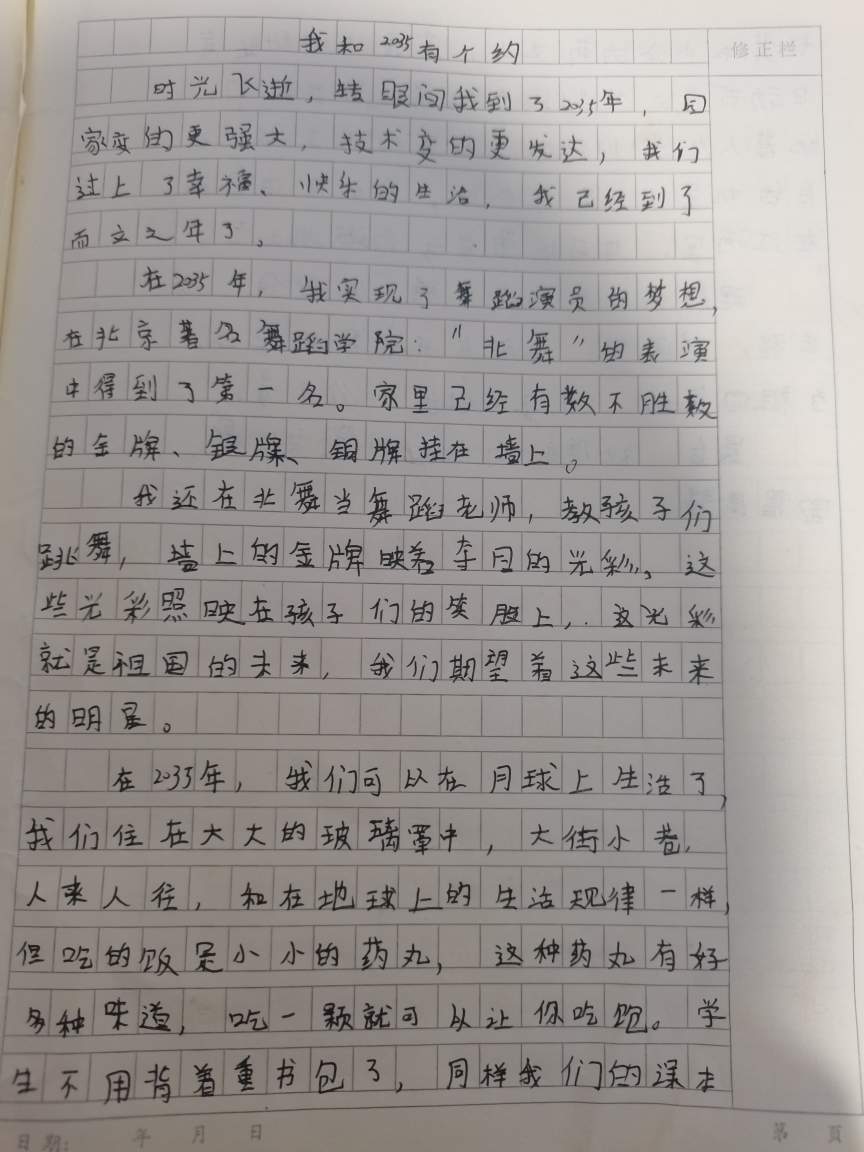 我和2035有个约
修正栏
时光飞逝，转眼间我到了2035年，国
家变的更强大，技术变的更发达，我们
过上了幸福、快乐的生活，我已经到了
而立之年了。
在2035年，我实现了舞蹈演员的梦想，
在北京著名舞蹈学院：“北舞”的表演
中得到了第一名。家里已经有数不胜数
的金牌、银牌、铜牌挂在墙上。
我还在北舞当舞蹈老师，教孩子们
跳舞，墙上的金牌映着夺目的光彩、这
些光彩照映在孩子们的笑脸上，这光彩
就是祖国的未来，我们期望着这些未来
的明星。
在2035年，我们可以在月球上生活了，
我们住在大大的玻璃罩中，大街小巷，
人来人往，和在地球上的生活规律一样，
但吃的饭是小小的药丸，这种药丸有好
多种味道，吃一颗就可以让你吃饱。学
生不用背着重书包了，同样我们的课本
日期： 年 月 日 第 頁